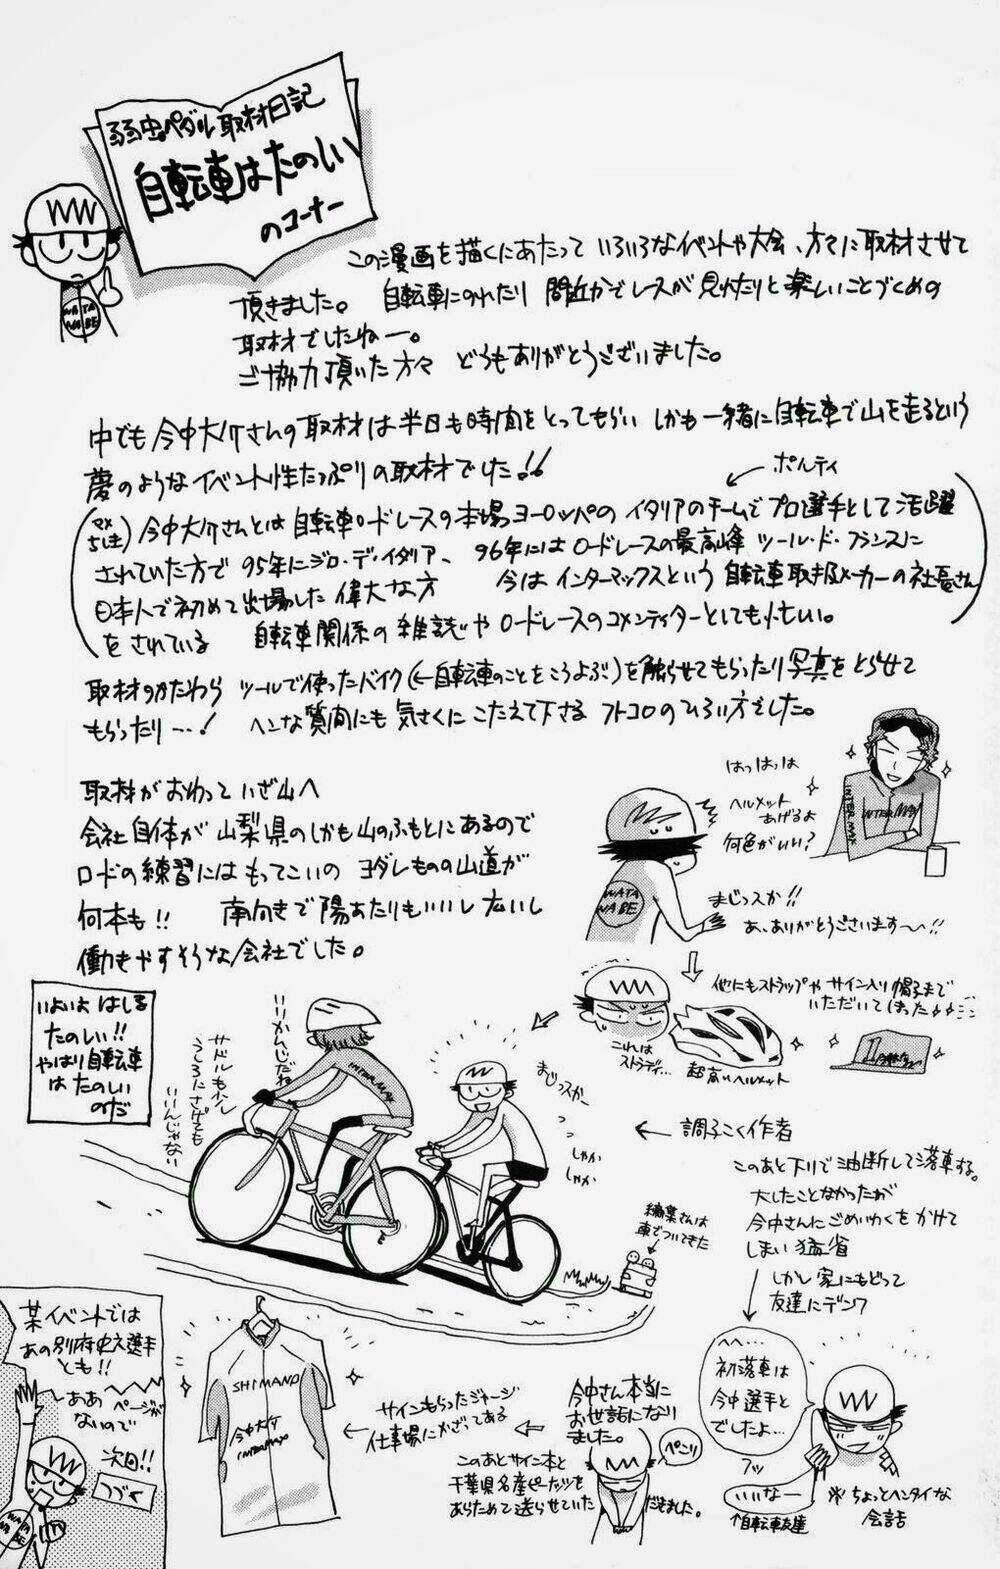 弱虫ペダル取材日記
自転車はたのしい
のコーナー
WATA
NABE
この漫画を描くにあたって いろいろなイベントや大会、方々に取材させて
頂きました。 自転車にのれたり 間近かでレースが見れたりと楽しいことづくめの
取材でしたねー。
ご協力頂いた方々 どうもありがとうございました。
中でも今中大介さんの取材は半日も時間をとってもらい しかも一緒に自転車で山を走るという
夢のようなイベント性たっぷりの取材でした!!
ポルティ
今中大介さんとは自転車ロードレースの本場ヨーロッパの イタリアのチームでプロ選手として活躍
されていた方で 95年にジロ・デ・イタリア、 96年にはロードレースの最高峰 ツール・ド・フランスに
日本人で初めて出場した偉大な方 今はインターマックスという 自転車取扱メーカーの社長さん
をされている 自転車関係の雑誌やロードレースのコメンテイターとしても忙しい。
取材のかたわら ツールで使ったバイク(←自転車のことをこうよぶ)を触らせてもらったり写真をとらせて
もらったり…! ヘンな質問にも 気さくにこたえて下さる フトコロのひろい方でした。
取材がおわっていざ山へ
会社自体が山梨県のしかも山のふもとにあるので
ロードの練習にはもってこいの ヨダレものの山道が
何本も!! 南向きで陽あたりもいいし広いし
働きやすそうな会社でした。
はっはっは
ヘルメット
あげるよ
何色がいい?
INTERMAX
WATA
NABE
まじっスか!!
あ、ありがとうございます〜〜!!
他にもストラップやサイン入り帽子まで
いただいてしまった
これは
ストラディ…
超高いヘルメット
いよいよ はしる
たのしい!!
やはり自転車
は たのしい
のだ
いいかんじだね
サドルもう少し
うしろにさげても
いいんじゃない
INTERMAX
まじっスかー
しゃか
しゃか
← 調子こく作者
このあと下りで油断して落車する。
大したことなかったが
今中さんにごめいわくをかけて
しまい猛省
しかし家にもどって
友達にデンワ
編集さんは
車でついてきた
へへ…
初落車は
今中選手と
でしたよ…
フッ
いいなー
自転車友達
※ちょっとヘンタイな
会話
今中さん本当に
お世話になり
ました。
ぺこり
このあとサイン本と
千葉県名産ピーナッツを
あらためて送らせていただきました。
サインもらったジャージ
仕事場にかざってある
SHIMANO
今中大介
INTERMAX
某イベントでは
あの別府史之選手
とも!!
しああ〜
ページが
ないので
次回!!
つづく
WATA